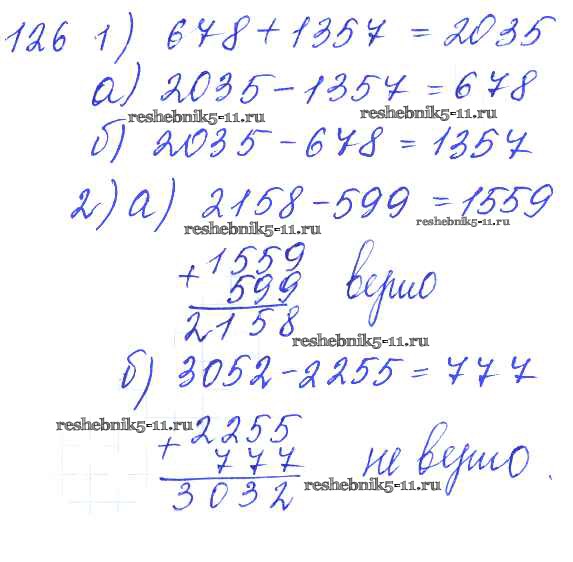 126 1) 678 + 1357 = 2035
а) 2035 - 1357 = 678
reshebnik5-11.ru reshebnik5-11.ru
б) 2035 - 678 = 1357
2) а) 2158 - 599 = 1559
reshebnik5-11.ru reshebnik5-11.ru
+ 1559
599 верно
2158
reshebnik5-11.ru
б) 3052 - 2255 = 777
reshebnik5-11.ru
+ 2255
777 не верно.
3032
reshebnik5-11.ru